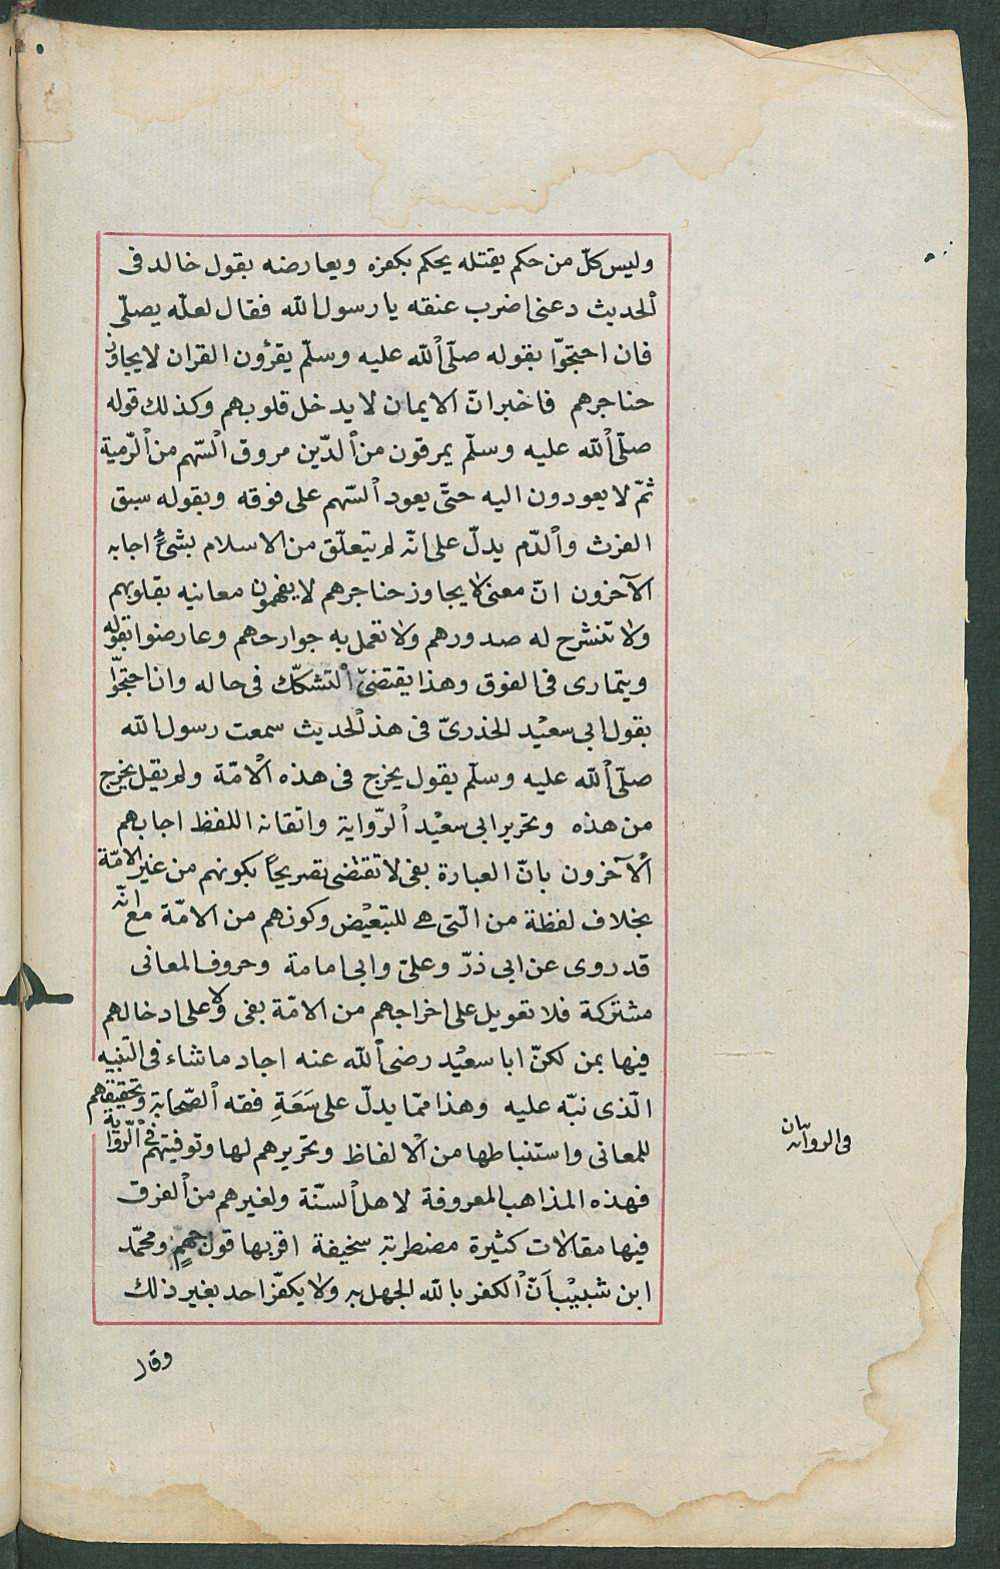 وليس كلّ من حكم يقتله يحكم بكفره ويعارضه بقول خالد فى
الحديث دعنى اضرب عنقه يا رسول الله فقال لعلّه يصلّى
فان احتجّوا بقوله صلّى الله عليه وسلّم يقرؤن القران لا يجاوز
حناجرهم فاخبر انّ الايمان لا يدخل قلوبهم وكذلك قوله
صلّى الله عليه وسلّم يمرقون من الدّين مروق السّهم من الرّمية
ثمّ لا يعودون اليه حتّى يعود السّهم على فوقه وبقوله سبق
الفرث والدّم يدلّ على انّه لم يتعلّق من الاسلام بشئ اجابه
الآخرون انّ معنى لا يجاوز حناجرهم لا يفهمون معانيه بقلوبهم
ولا تنشرح له صدورهم ولا تعمل به جوارحهم وعارضوا بقوله
ويتمارى فى الفوق وهذا يقتضىّ التشكّك فى حاله وان احتجّوا
بقول ابى سعيد الخذرىّ فى هذ الحديث سمعت رسول الله
صلّى الله عليه وسلّم يقول يخرج فى هذه الامّة ولم يقل يخرج
من هذه وتحرير ابى سعيد الرّواية واتقانه اللفظ اجابهم
الآخرون بانّ العبارة بفى لا تقتضى تصريحًا بكونهم من غير الامّة
بخلاف لفظة من الّتى هى للتبعيض وكونهم من الامّة مع انّه
قد روى عن ابى ذرّ وعلىّ وابى امامة وحروف المعانى
مشتركة فلا تعويل على اخراجهم من الامّة بفى ولا على ادخالهم
فيها بمن لكنّ ابا سعيد رضى الله عنه اجاد ما شاء فى التنبيه
الّذى نبّه عليه وهذا ممّا يدلّ على سَعَةِ فقه الصّحابة وتحقيقهم
للمعانى واستنباطها من الالفاظ وتحريرهم لها وتوقيتهم فى الرّواية
فهذه المذاهب المعروفة لاهل السنّة ولغيرهم من الفرق
فيها مقالات كثيرة مضطربة سخيفة اقربها قول جهمٍ ومحمّد
ابن شبيب انّ الكفر بالله الجهل به ولا يكفّر احد بغير ذلك
وقال